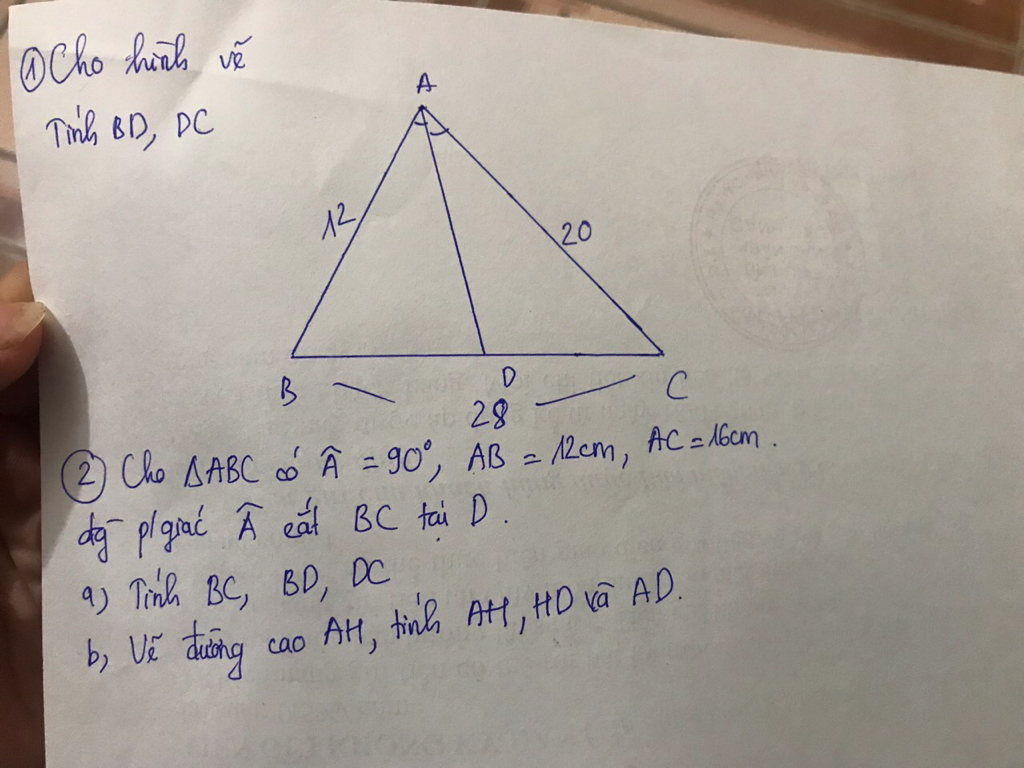 ① Cho hình vẽ
Tính BD, DC
A
12
20
B
D
C
28
② Cho ΔABC có Â = 90°, AB = 12cm, AC = 16cm.
đg p/giác Â cắt BC tại D.
a) Tính BC, BD, DC
b, Vẽ đường cao AH, tính AH, HD và AD.